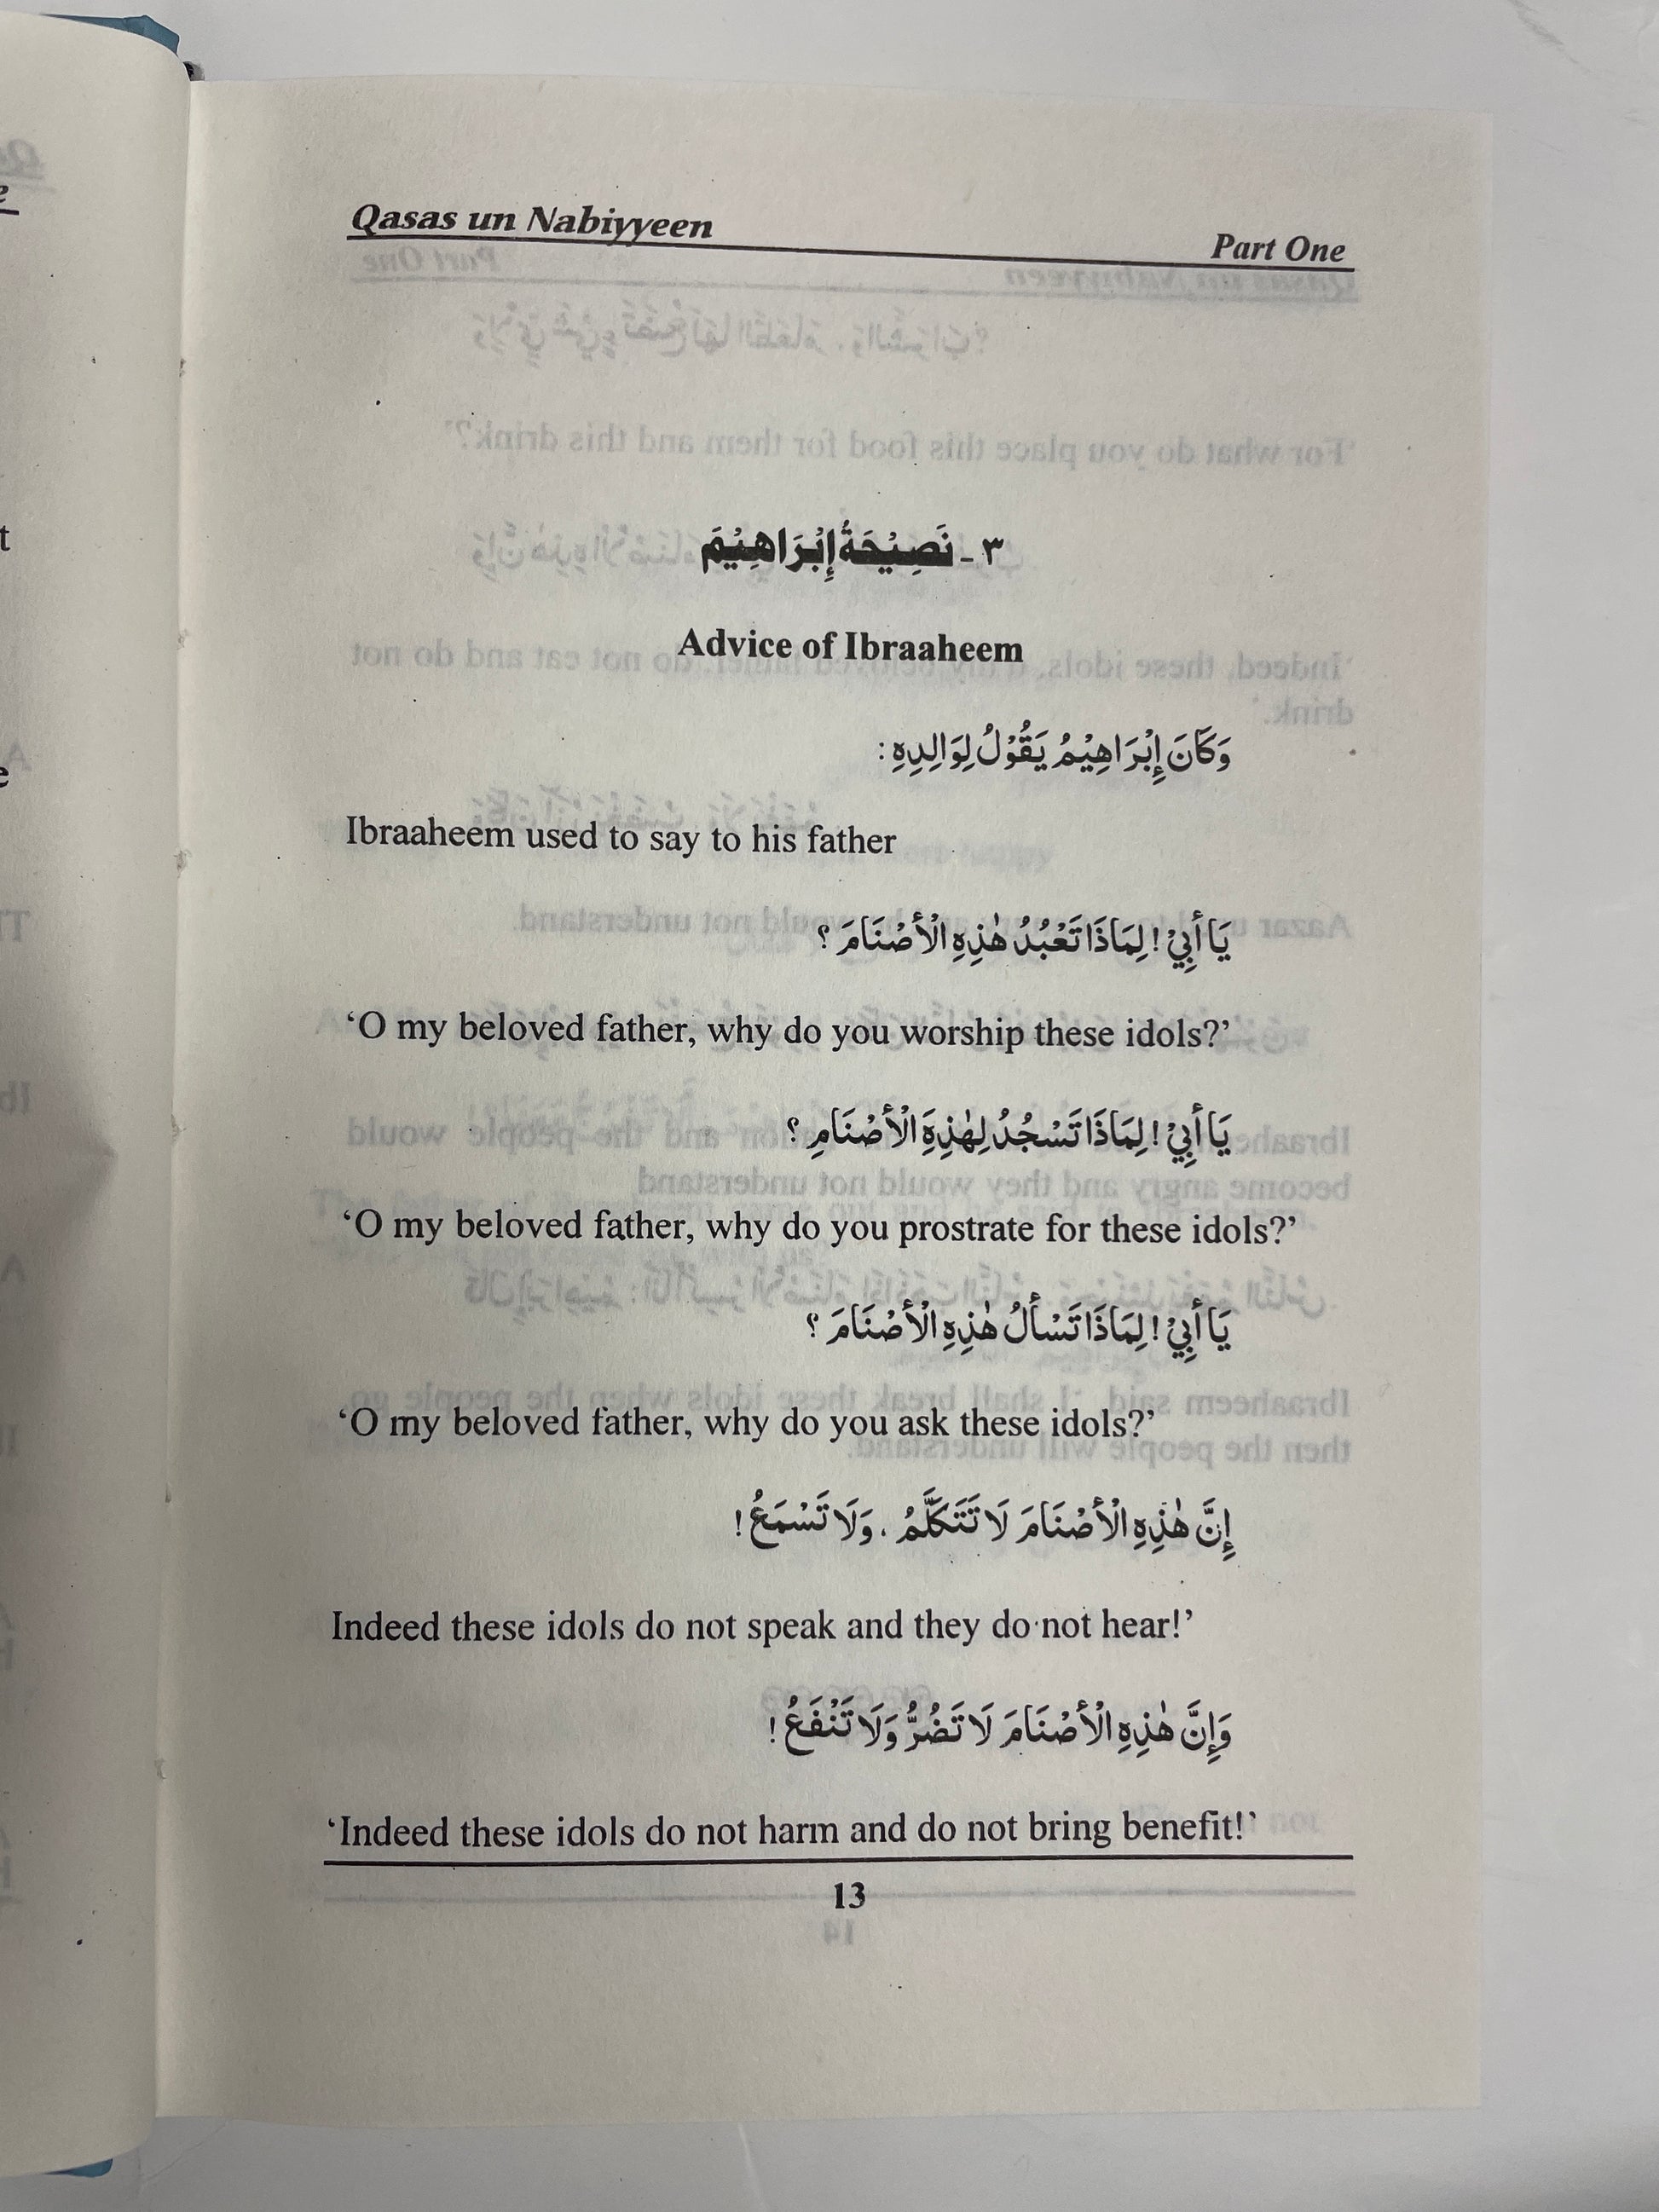 Qasas un Nabiyyeen Part One
٣ - نَصِيْحَةُ إِبْرَاهِيْمَ
Advice of Ibraaheem
وَكَانَ إِبْرَاهِيْمُ يَقُوْلُ لِوَالِدِهِ :
Ibraaheem used to say to his father
يَا أَبِيْ ! لِمَاذَا تَعْبُدُ هٰذِهِ الْأَصْنَامَ ؟
‘O my beloved father, why do you worship these idols?’
يَا أَبِيْ ! لِمَاذَا تَسْجُدُ لِهٰذِهِ الْأَصْنَامِ ؟
‘O my beloved father, why do you prostrate for these idols?’
يَا أَبِيْ ! لِمَاذَا تَسْأَلُ هٰذِهِ الْأَصْنَامَ ؟
‘O my beloved father, why do you ask these idols?’
إِنَّ هٰذِهِ الْأَصْنَامَ لَا تَتَكَلَّمُ ، وَلَا تَسْمَعُ !
Indeed these idols do not speak and they do not hear!’
وَإِنَّ هٰذِهِ الْأَصْنَامَ لَا تَضُرُّ وَلَا تَنْفَعُ !
‘Indeed these idols do not harm and do not bring benefit!’
13